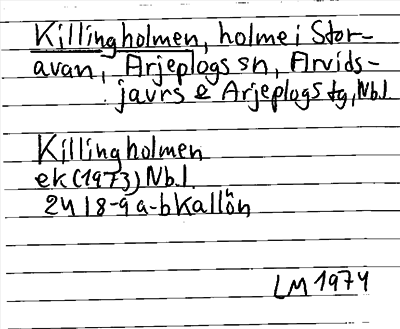 Killingholmen, holme i Stor-
avan, Arjeplogs sn, Arvids-
jaurs e Arjeplogs tg, Nb.l
Killingholmen
ek (1973) Nb.l.
24 I 8-9 a-b Kallön
LM 1974